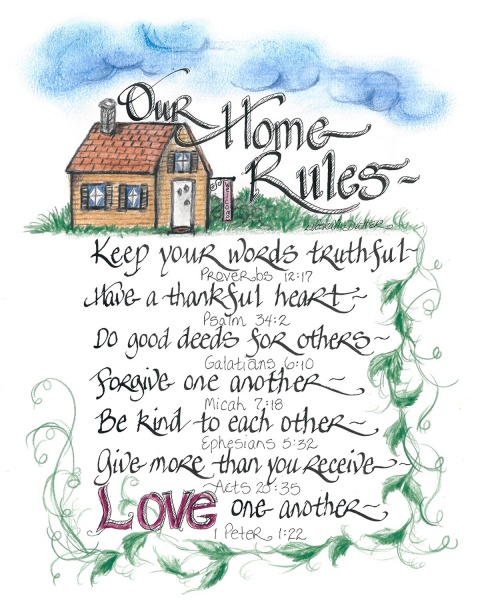 Our Home
Rules~
Keep your words truthful~
Proverbs 12:17
Have a thankful heart~
Psalm 34:2
Do good deeds for others~
Galatians 6:10
Forgive one another~
Micah 7:18
Be kind to each other~
Ephesians 5:32
Give more than you receive~
~Acts 20:35
LOVE one another~
1 Peter 1:22